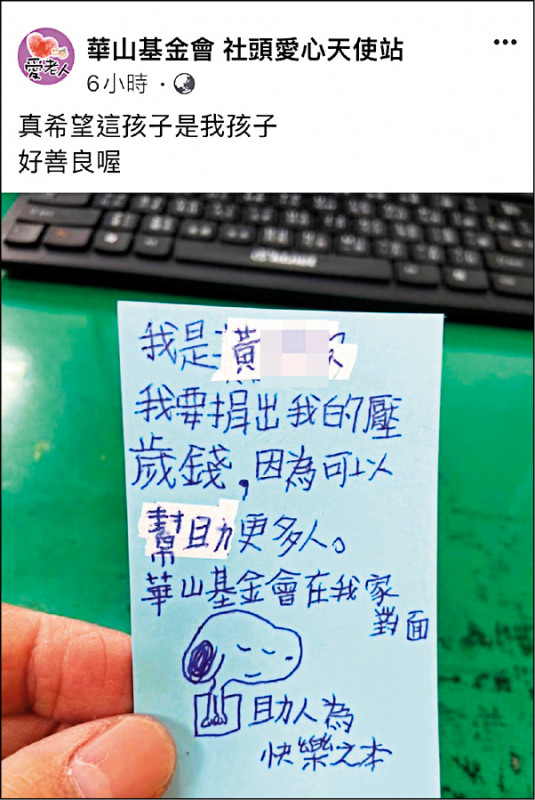 華山基金會 社頭愛心天使站
6小時
真希望這孩子是我孩子
好善良喔
愛老人
我是黃
我要捐出我的壓
歲錢,因為可以
幫助更多人。
華山基金會在我家
對面
助人為
快樂之本